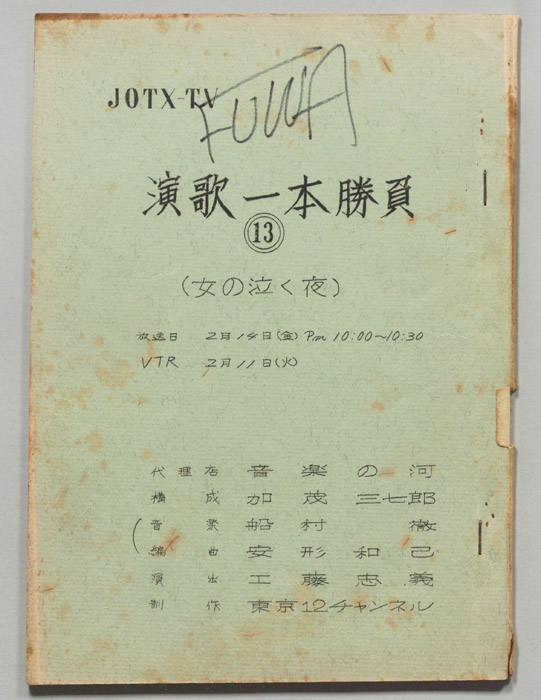 JOTX-TV
演歌一本勝負
13
(女の泣く夜)
放送日 2月14日(金) Pm 10:00~10:30
VTR 2月11日(火)
代理店 音楽の河
構成 加茂三七郎
音楽 船村徹
編曲 安形和己
演出 工藤忠義
制作 東京12チャンネル